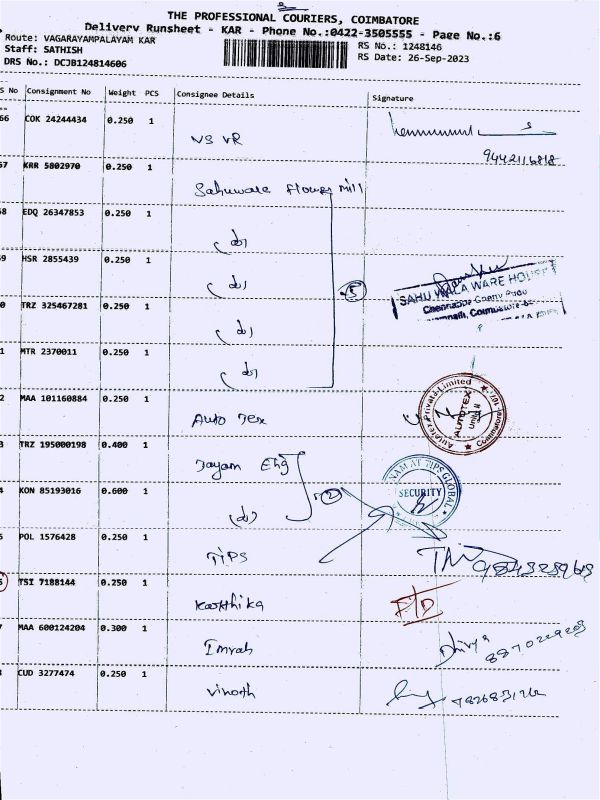 THE PROFESSIONAL COURIERS, COIMBATORE
Delivery Runsheet - KAR - Phone No.:0422-3505555 - Page No.:6
Route: VAGARAYAMPALAYAM KAR
RS No.: 1248146
Staff: SATHISH
RS Date: 26-Sep-2023
DRS No.: DCJB124814606
S No Consignment No Weight PCS Consignee Details Signature
66 COK 24244434 0.250 1 NS VR
9442116818
67 KRR 5802970 0.250 1 Sahuwala flour mill
68 EDQ 26347853 0.250 1 (do)
69 HSR 2855439 0.250 1 (do)
5
SAHUWALA WARE HOUSE
0 TRZ 325467281 0.250 1 (do)
1 MTR 2370011 0.250 1 (do)
2 MAA 101160884 0.250 1 Auto Tex
Autotex Private Limited
AUTOTEX
Unit II
Coimbatore
3 TRZ 195000198 0.400 1 Jayam Eng
2
4 KON 85193016 0.600 1 (do)
AT TIPS GLOBAL
SECURITY
5 POL 1576428 0.250 1 TIPS
6 TSI 7188144 0.250 1 Karthika
7 MAA 600124204 0.300 1 Imran
Dhivya
8870229203
8 CUD 3277474 0.250 1 Vinoth